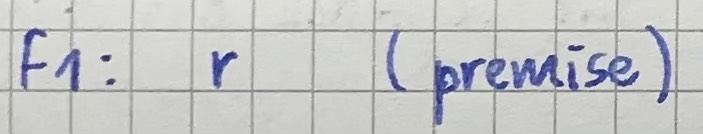 F1: r (premise)